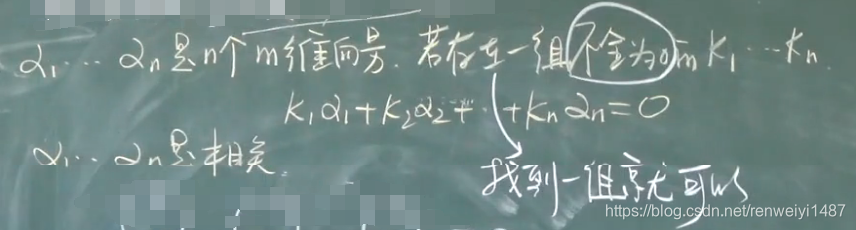 α₁⋯αₙ是n个m维向量.若存在一组不全为0的k₁⋯kₙ.
k₁α₁+k₂α₂+⋯+kₙαₙ=0
α₁⋯αₙ是相关.
找到一组就可以
https://blog.csdn.net/renweiyi1487